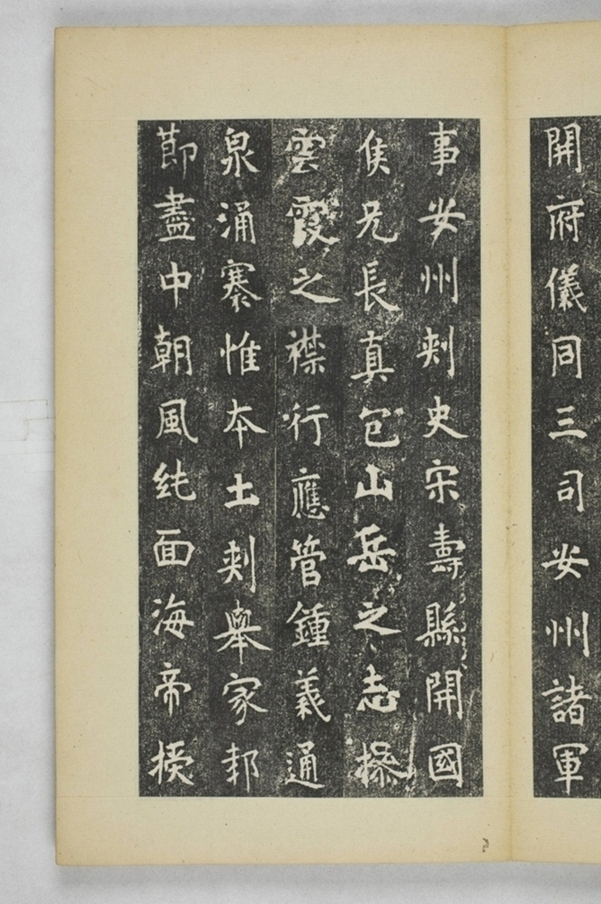 開府儀同三司安州諸軍
事安州刾史宋壽縣開國
侯兄長真包山岳之志操
雲霞之襟行應管鍾義通
泉涌寨惟本土刾舉家邦
莭盡中朝風紞面海帝